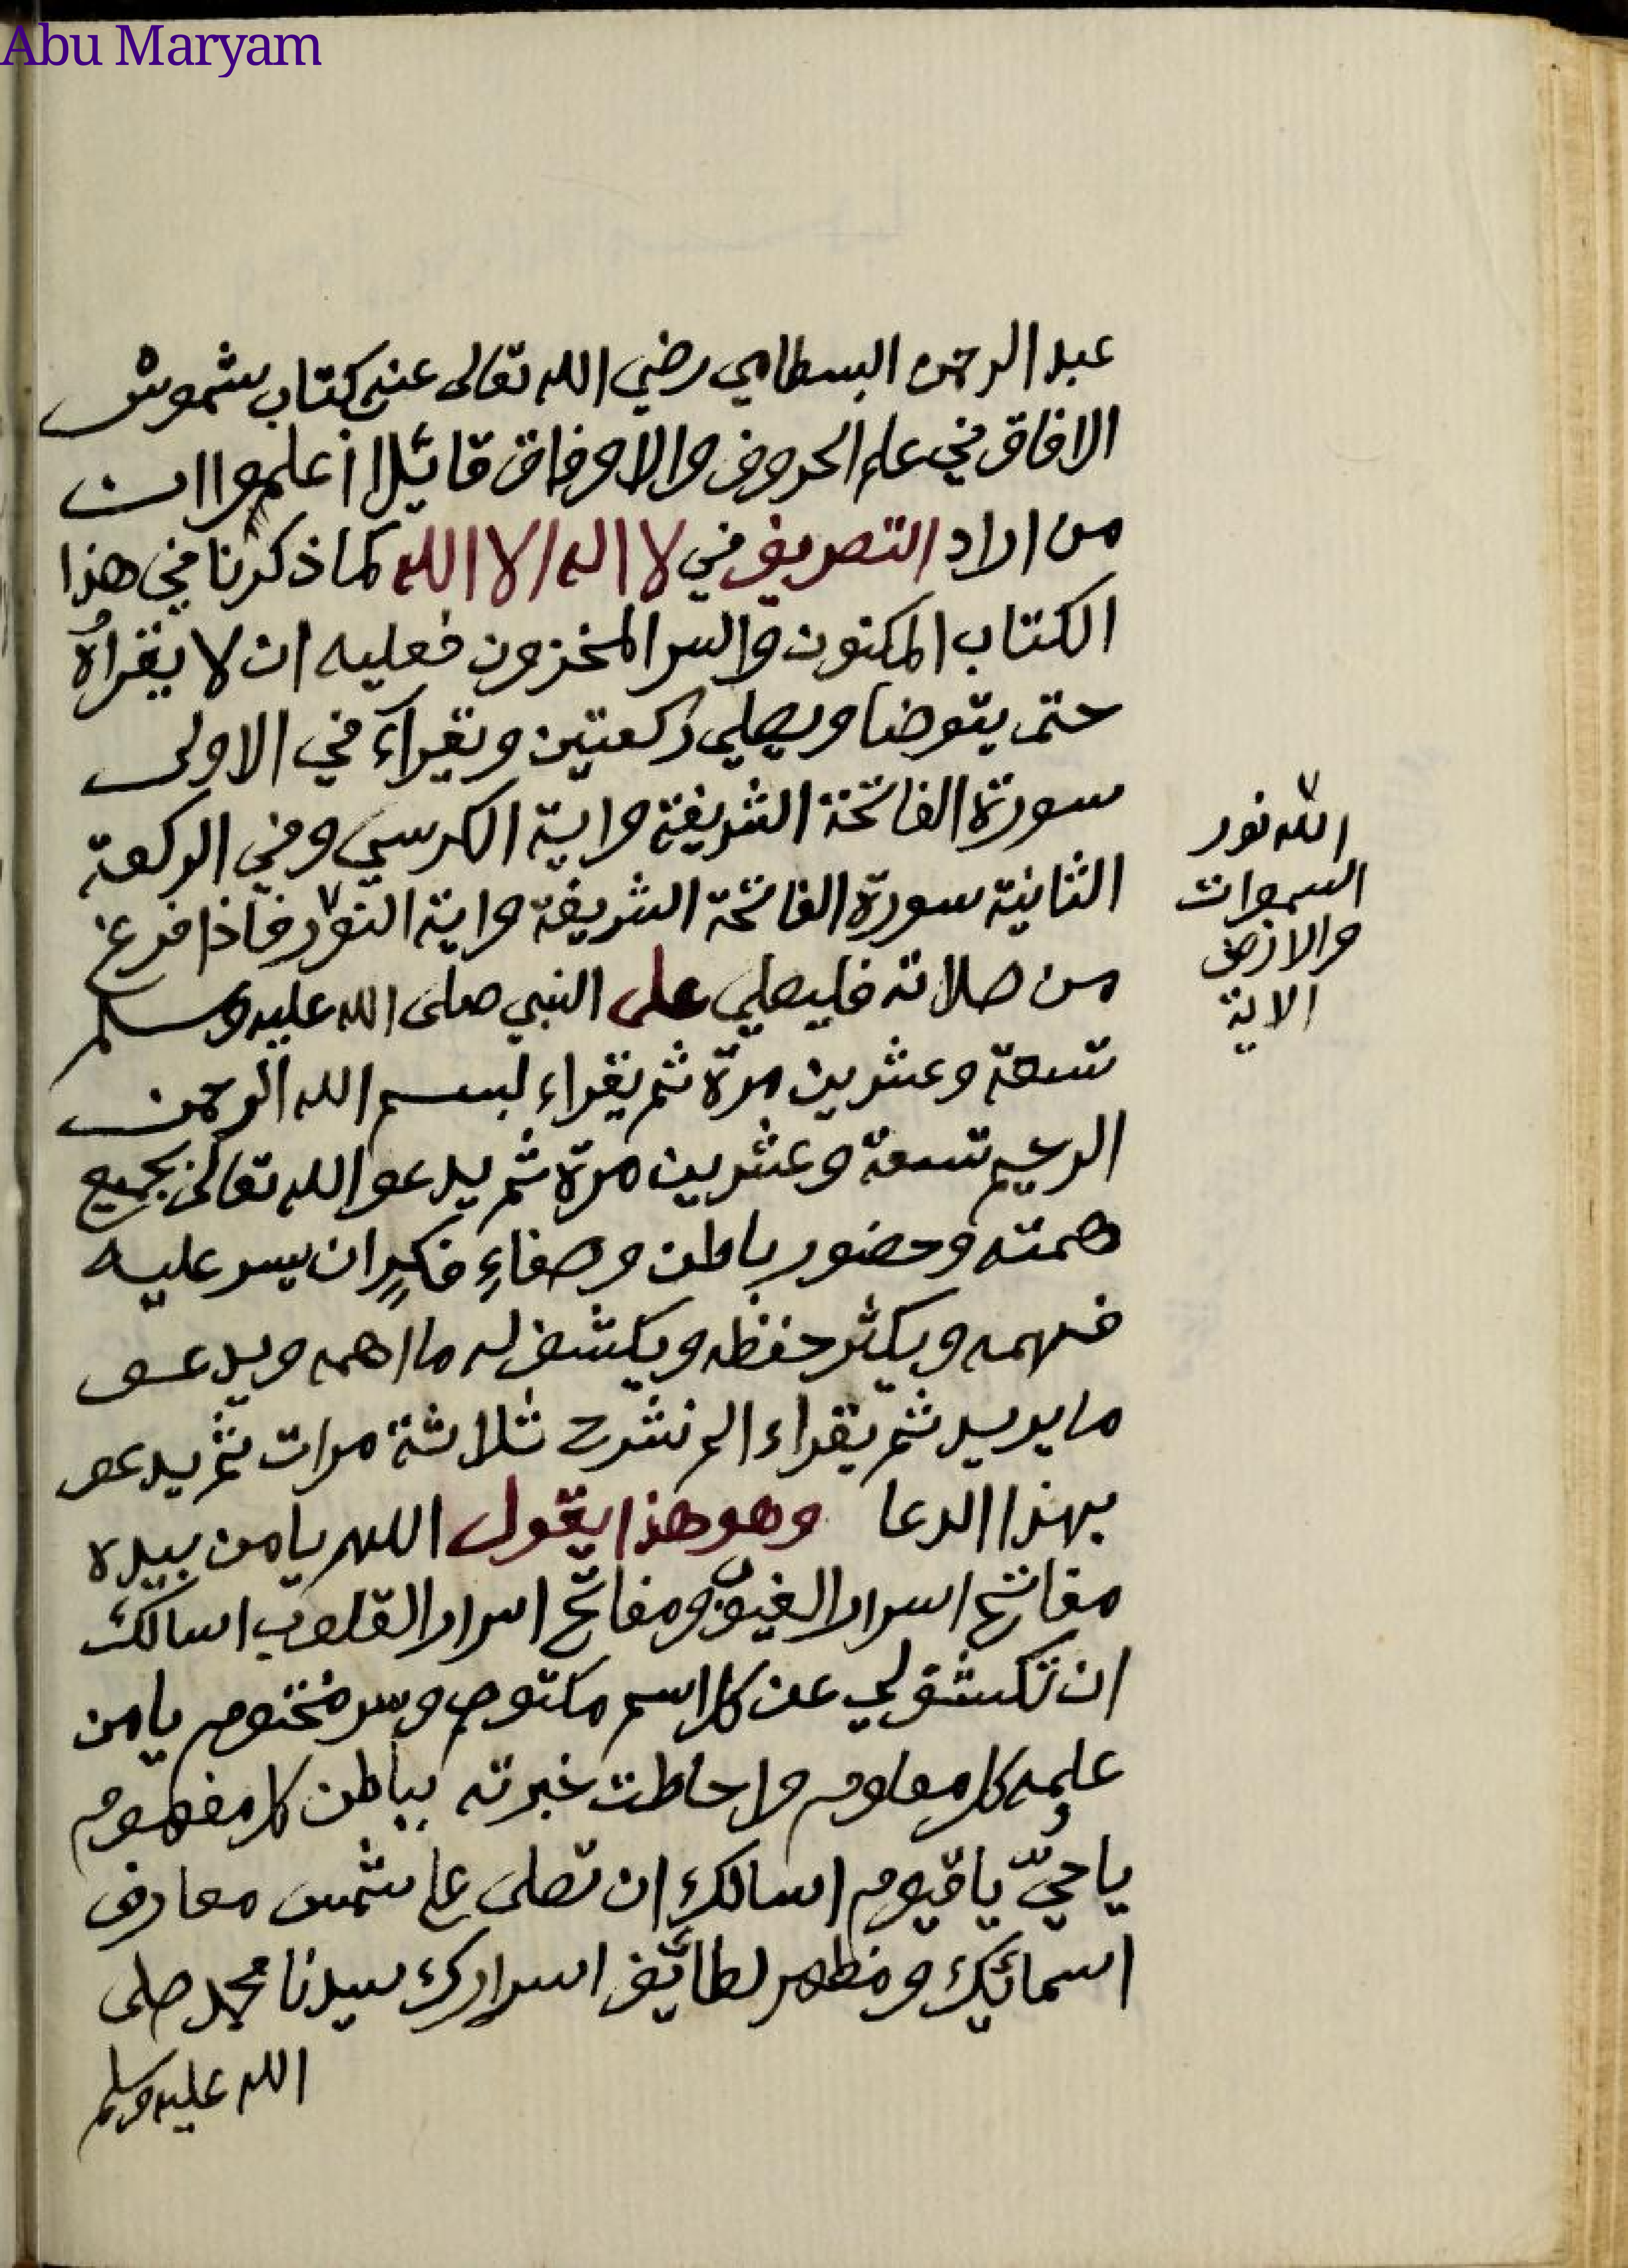 Abu Maryam
عبد الرحمن البسطامي رضي الله تعالى عنه كتاب شموش
الافاق في علم الحروف والاوفاق قائلا أعلموا ان
من اراد التصريف في لا اله الا الله كما ذكرنا في هذا
الكتاب المكنون والسر المخزون فعليه ان لا يقراهُ
حتى يتوضا ويصلي ركعتين ويقراء في الاولى
سورة الفاتحة الشريفة واية الكرسي وفي الركعة
الثانية سورة الفاتحة الشريفة واية النور فاذا فرغ
من صلاته فليصلي على النبي صلى الله عليه وسلم
تسعة وعشرين مرة ثم يقراء لبسم الله الرحمن
الرحيم تسعة وعشرين مرة ثم يدعوا الله تعالى بجميع
همته وحضور باطن وصفاءٍ فكرٍ ان يسر عليه
فهمه ويكثر حفظه ويكشف له ما اهمه ويدعو
ما يريد ثم يقراء الم نشرح ثلاثة مرات ثم يدعو
بهذا الدعا وهو هذا يقول اللهم يا من بيده
مفاتيح اسرار الغيوب ومفاتح اسرار القلوب اسالك
ان تكشف لي عن كل اسم مكتوم وسر مختوم يا من
علمه كل معلوم واحاطت خبرته بباطن كل مفهوم
يا حيّ يا قيوم اسالك ان تصلى على شمس معارف
اسمائك ومظهر لطائف اسرارك سيدنا محمد صلى
الله عليه وسلم
الله نور
السموات
والارض
الاية